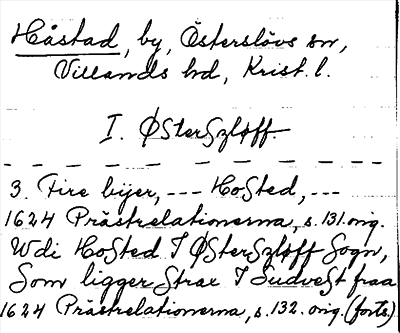 Håstad, by, Österslövs sn,
Villands hd, Krist. l.
I. Østerszløff
3. Fire bijer, --- Hosted, ---
1624 Prästrelationerna, s. 131. orig.
Wdi Hosted I Østerszløff Sogn,
Som ligger strax I Sudvest fraa
1624 Prästrelationerna, s. 132. orig. (forts.)